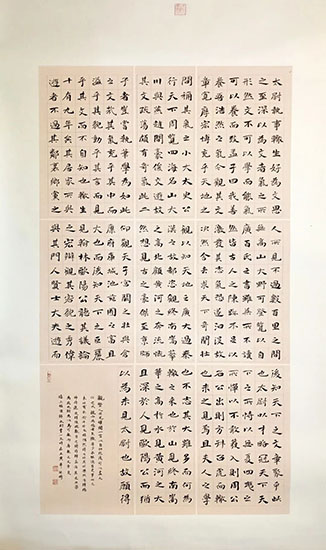 太尉執事轍生好為文思
之至深以為文者氣之所
形然文不可以學而能氣
可以養而致孟子曰我善
養吾浩然之氣今觀其文
章寬厚宏博充乎天地之
間稱其氣之小大太史公
行天下周覽四海名山大
川與燕趙間豪俊交遊故
其文疏蕩頗有奇氣此二
子者豈嘗執筆學為如此
之文哉其氣充乎其中而
溢乎其貌動乎其言而見
乎其文而不自知也轍生
十有九年矣其居家所與
遊者不過其鄰里鄉黨之
人所見不過數百里之間
無高山大野可登覽以自
廣百氏之書雖無所不讀
然皆古人之陳跡不足以
激發其志氣恐遂汩沒故
決然舍去求天下奇聞壯
觀以知天地之廣大過秦
漢之故都恣觀終南嵩華
之高北顧黃河之奔流慨
然想見古之豪傑至京師
仰觀天子宮闕之壯與倉
廩府庫城池苑囿之富且
大也而後知天下之巨麗
見翰林歐陽公聽其議論
之宏辯觀其容貌之秀偉
與其門人賢士大夫遊而
後知天下之文章聚乎此
也太尉以才略冠天下天
下之所恃以無憂四夷之
所憚以不敢發入則周公
召公出則方叔召虎而轍
也未之見焉且夫人之學
也不志其大雖多而何為
轍之來也於山見終南嵩
華之高於水見黃河之大
且深於人見歐陽公而猶
以為未見太尉也故願得